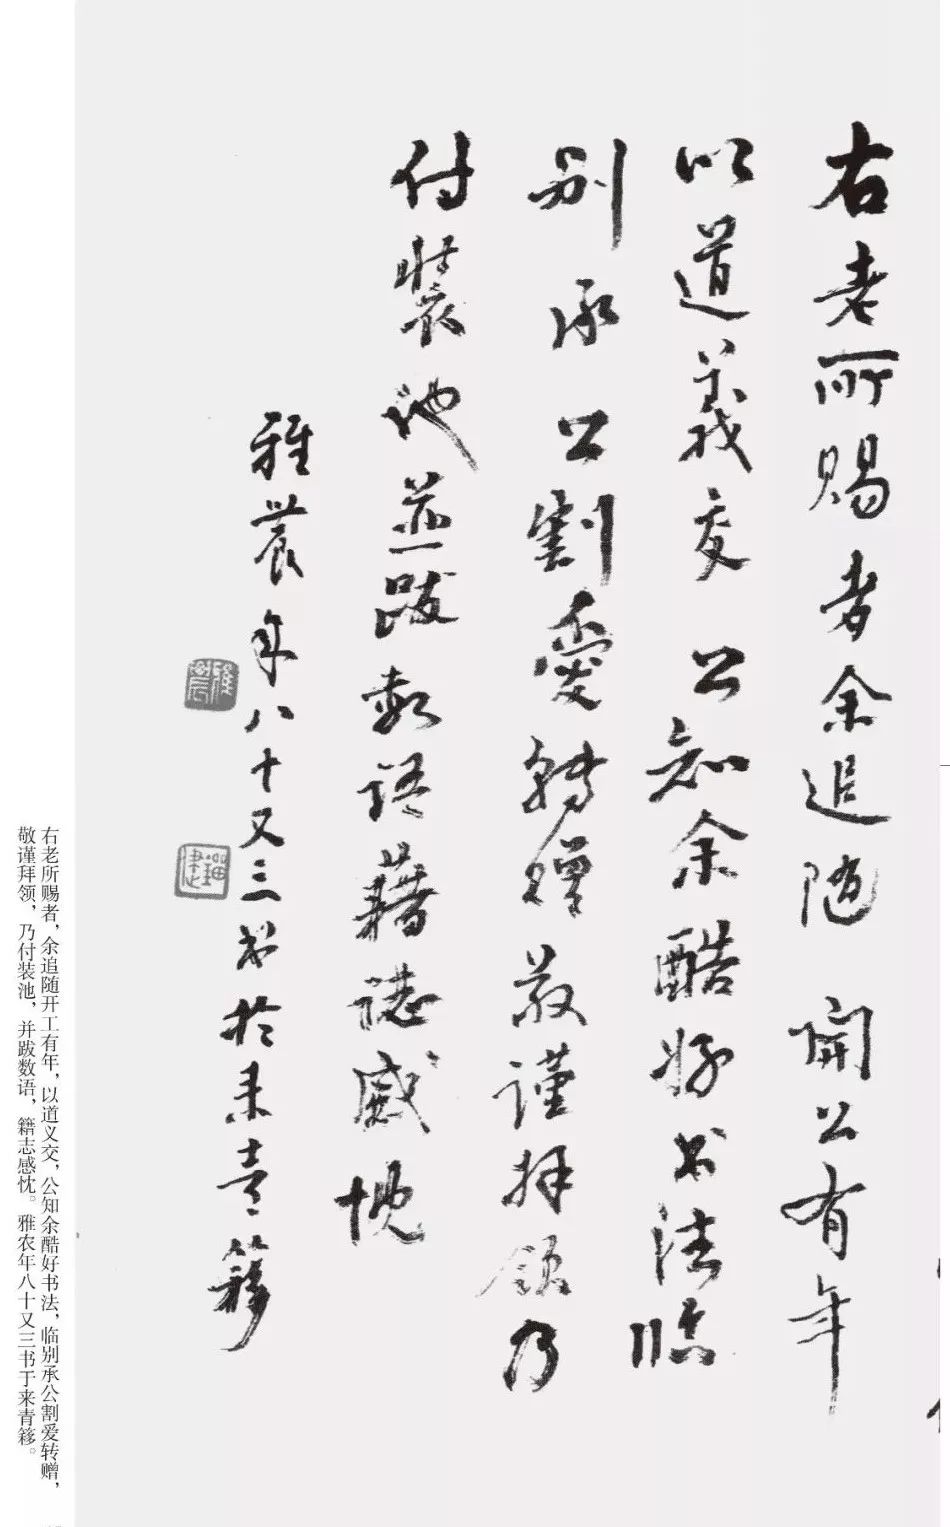 右老所赐者余追随 開公有年
以道義交 公知余酷好书法临
别承公割愛轉贈敬謹拜領乃
付装池並跋数語藉誌感忱
雅農年八十又三书於来青簃
雅農
右老所赐者，余追随开工有年，以道义交，公知余酷好书法，临别承公割爱转赠，
敬谨拜领，乃付装池，并跋数语，籍志感忱。雅农年八十又三书于来青簃。